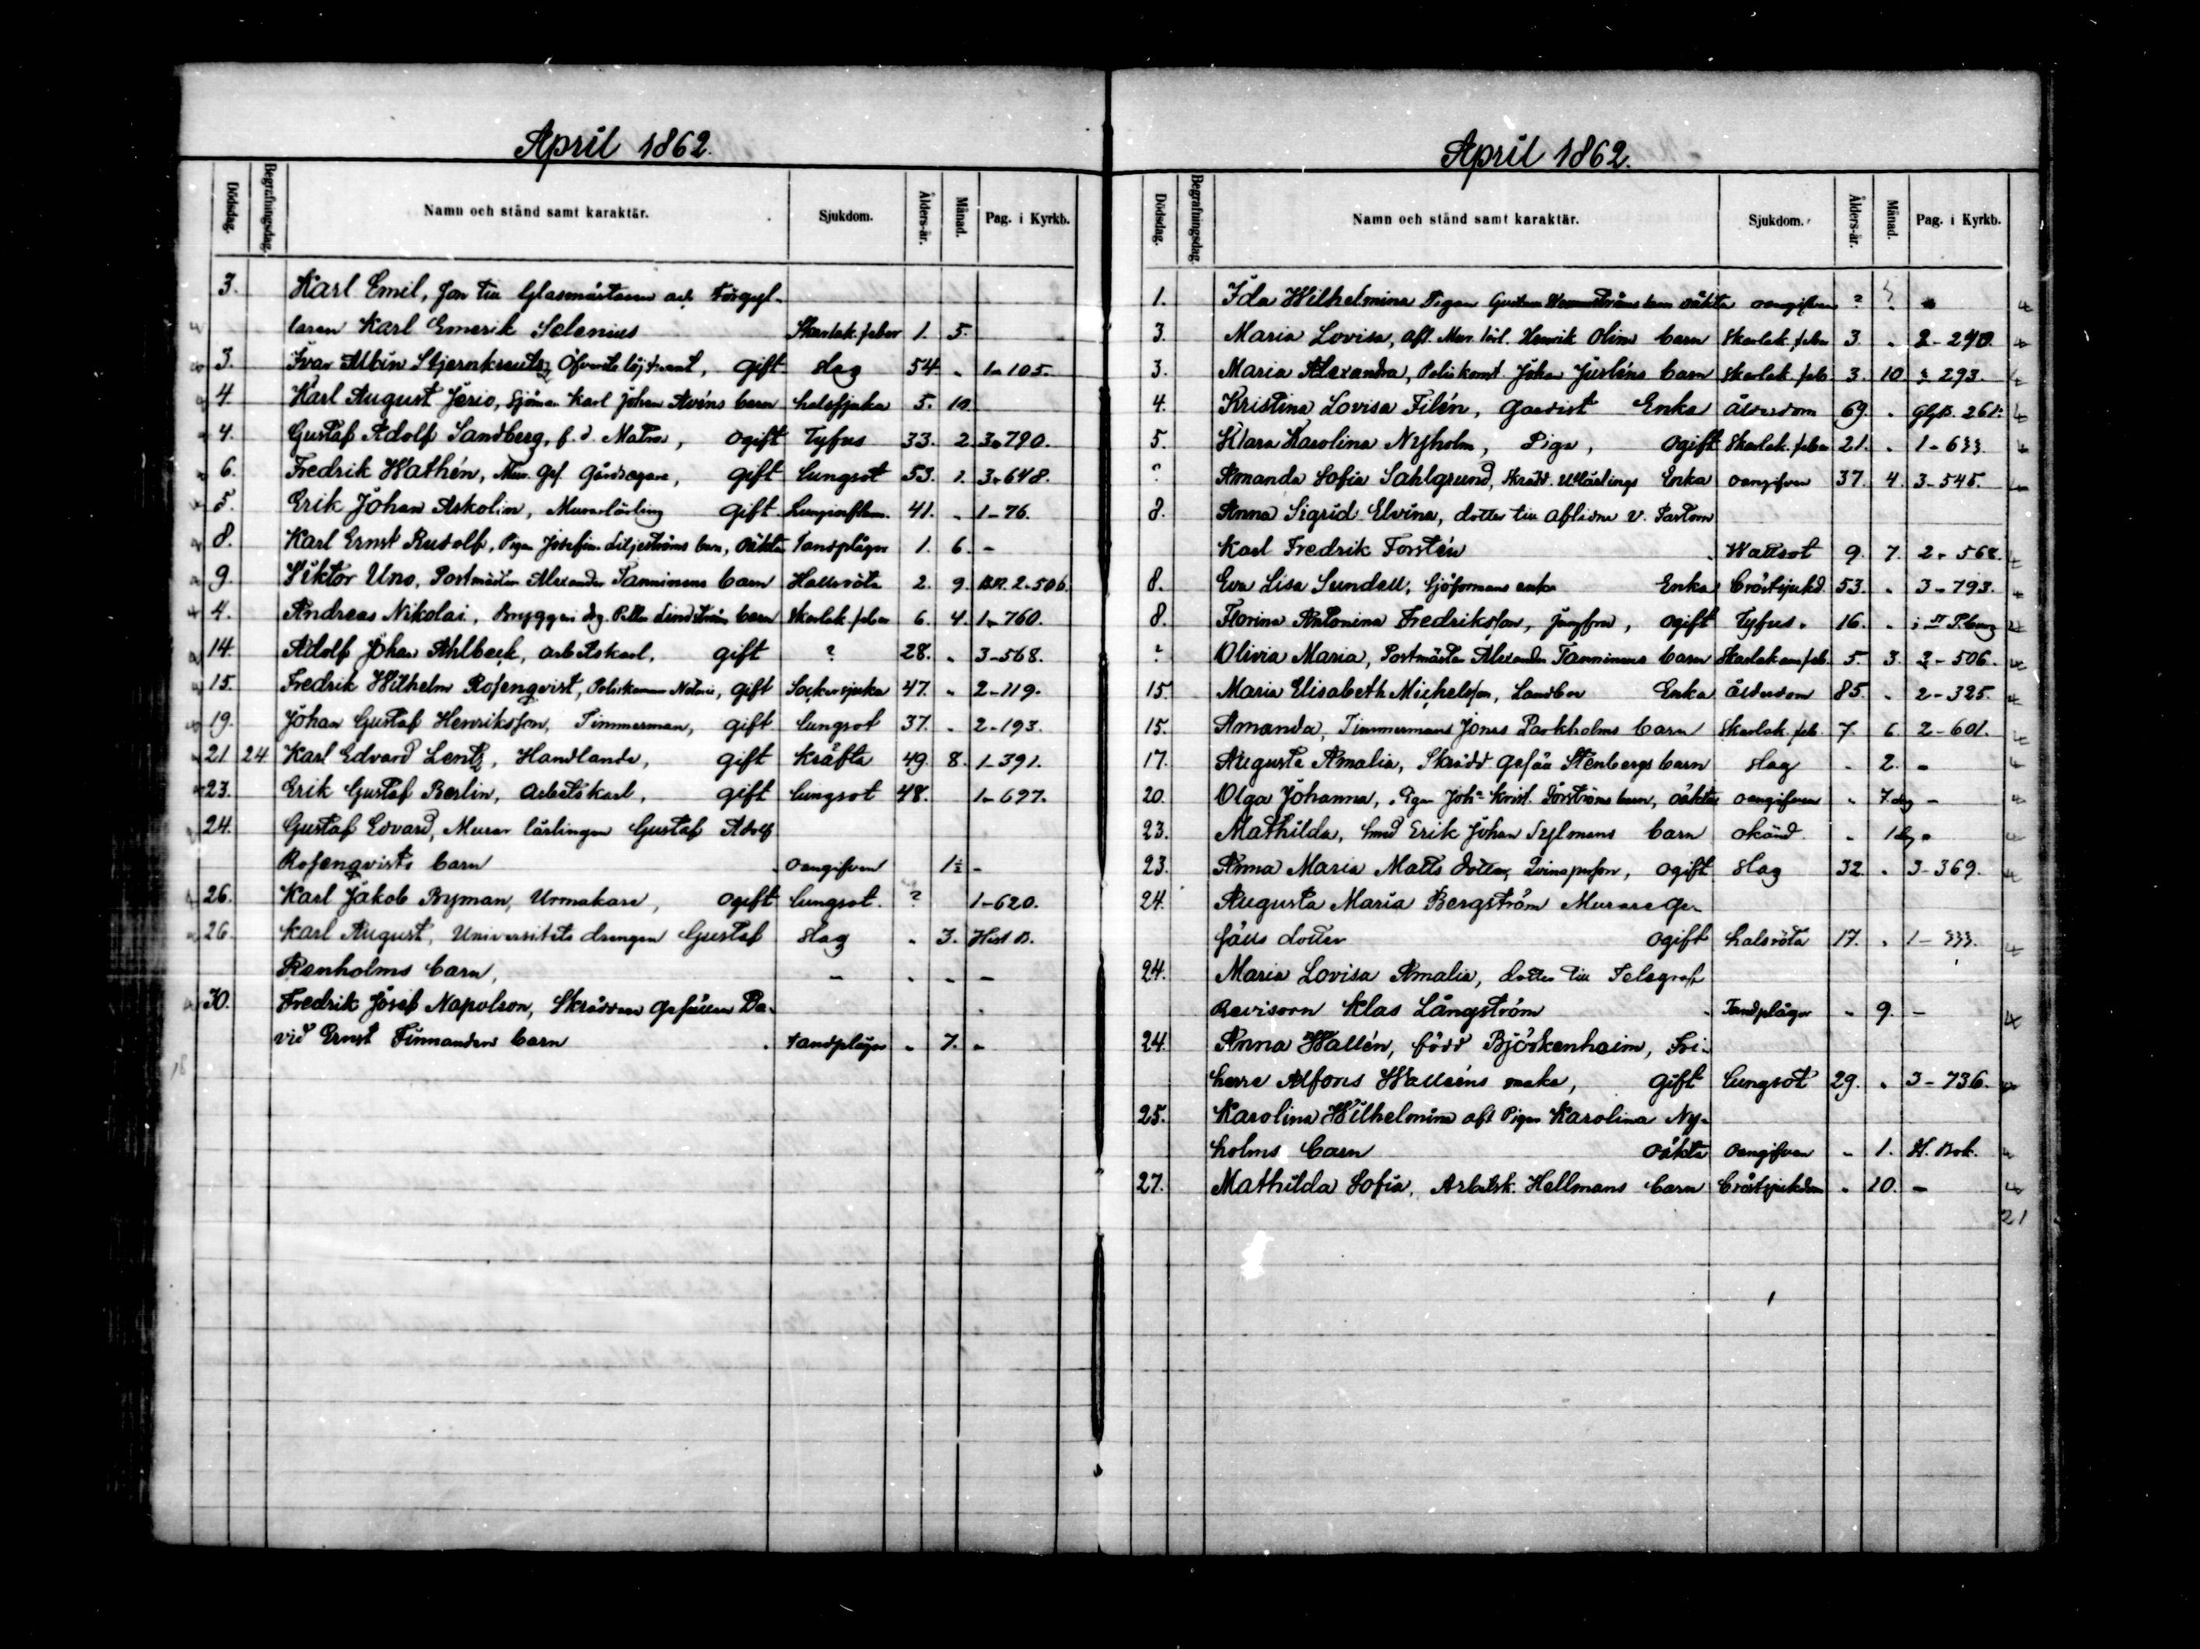 April 1862.
Dödsdag. Begrafningsdag. Namn och stånd samt karaktär. Sjukdom. Ålders-år. Månad. Pag. i Kyrkb.
3. Karl Emil, son till Glasmästaren och Förgyl-
laren Karl Emerik Selenius Skarlak. feber 1. 5.
3. Ivar Albin Stjernkreutz, Öfverstelöjtnant, gift slag 54. " 1-105.
4. Karl August Jerio, Sjöman Karl Johan Avéns barn halssjuka 5. 10.
4. Gustaf Adolf Sandberg, f. d. Matros, ogift Tyfus 33. 2. 3-790.
6. Fredrik Wathén, Mur. Ges. Gårdsegare, gift lungsot 53. 1. 3-648.
5. Erik Johan Askolin, Murarlärling gift Lunginflam. 41. " 1-76.
8. Karl Ernst Rudolf, Pigan Josefina Liljeströms barn, oäkta tandplågor 1. 6. -
9. Viktor Uno, Postmästar Alexander Tanninens barn Halsröta 2. 9. 2.506.
4. Andreas Nikolai, Bryggeri drg. Pelle Lindströms barn Skarlak. feber 6. 4. 1-760.
14. Adolf Johan Ahlbeck, arbetskarl, gift ? 28. " 3-568.
15. Fredrik Wilhelm Rosenqvist, Poliskammar Notarie, gift Sockersjuka 47. " 2-119.
19. Johan Gustaf Henriksson, Timmerman, gift lungsot 37. " 2-193.
21 24. Karl Edvard Lentz, Handlande, gift Kräfta 49. 8. 1-391.
23. Erik Gustaf Berlin, arbetskarl, gift lungsot 48. 1-697.
24. Gustaf Edvard, Murar lärlingen Gustaf Adolf
Rosenqvists barn oangifven 1½ -
26. Karl Jakob Byman, Urmakare, ogift lungsot. ? 1-620.
26. Karl August, Universitets drengen Gustaf slag " 3. Hist. B.
Renholms barn, - " - -
30. Fredrik Josef Napoleon, Skräddare Gesällen Da-
vid Ernst Finnanders barn tandplågor " 7. "
18
April 1862.
Dödsdag. Begrafningsdag Namn och stånd samt karaktär. Sjukdom. Ålders-år. Månad. Pag. i Kyrkb.
1. Ida Wilhelmina Pigan barn oäkta oangifven ? ?
3. Maria Lovisa, afl. Mur. lärl. Henrik Olins barn Skarlak. feber 3. " 2-290.
3. Maria Alexandra, Poliskonst. Johan Jusléns barn Skarlak. feb. 3. 10 293.
4. Kristina Lovisa Filén, Gardist Enka ålderdom 69. " 261.
5. Klara Karolina Nyholm, Piga, ogift Skarlak. feber 21. " 1-633.
? Amanda Sofia Sahlgrund, Skrädd. Lärlings Enka oangifven 37. 4. 3-545.
8. Anna Sigrid Elvina, dotter till aflidne v. Pastorn
Karl Fredrik Forstén Wattsot 9. 7. 2-568.
8. Eva Lisa Sundell, Sjöformans enka Enka bröstsjukd. 53. " 3-793.
8. Florina Antonina Fredriksson, Jungfru, ogift Tyfus. 16. " i St P.burg
? Olivia Maria, Postmästar Alexander Tanninens barn Skarlakansfeb. 5. 3. 2-506.
15. Maria Elisabeth Michelsson, Landbo Enka ålderdom 85. " 2-325.
15. Amanda, Timmermans Jonas Parkholms barn Skarlak. feb. 7. 6. 2-601.
17. Augusta Amalia, Skrädd. gesäll Stenbergs barn slag " 2. "
20. Olga Johanna, Pigan Joh:a Krist. Forströms barn, oäkta oangifven " 7. dg -
23. Mathilda, smed Erik Johan Sylmans barn okänd. " 1 dg "
23. Anna Maria Matts dotter, ogift slag 32. " 3-369.
24. Augusta Maria Bergström Murare ge-
sälls dotter ogift halsröta 17. " 1-333.
24. Maria Lovisa Amalia, dotter till Telegraf
Revisorn Klas Långström Tandplågor " 9. -
24. Anna Wallén, född Björkenheim, Fri-
herre Alfons Walléens maka, gift lungsot 29. " 3-736.
25. Karolina Wilhelmina afl. Pigan Karolina Ny-
holms barn oäkta oangifven " 1. H. Bok.
27. Mathilda Sofia, Arbetsk. Hellmans barn bröstsjukdom " 10. -
21